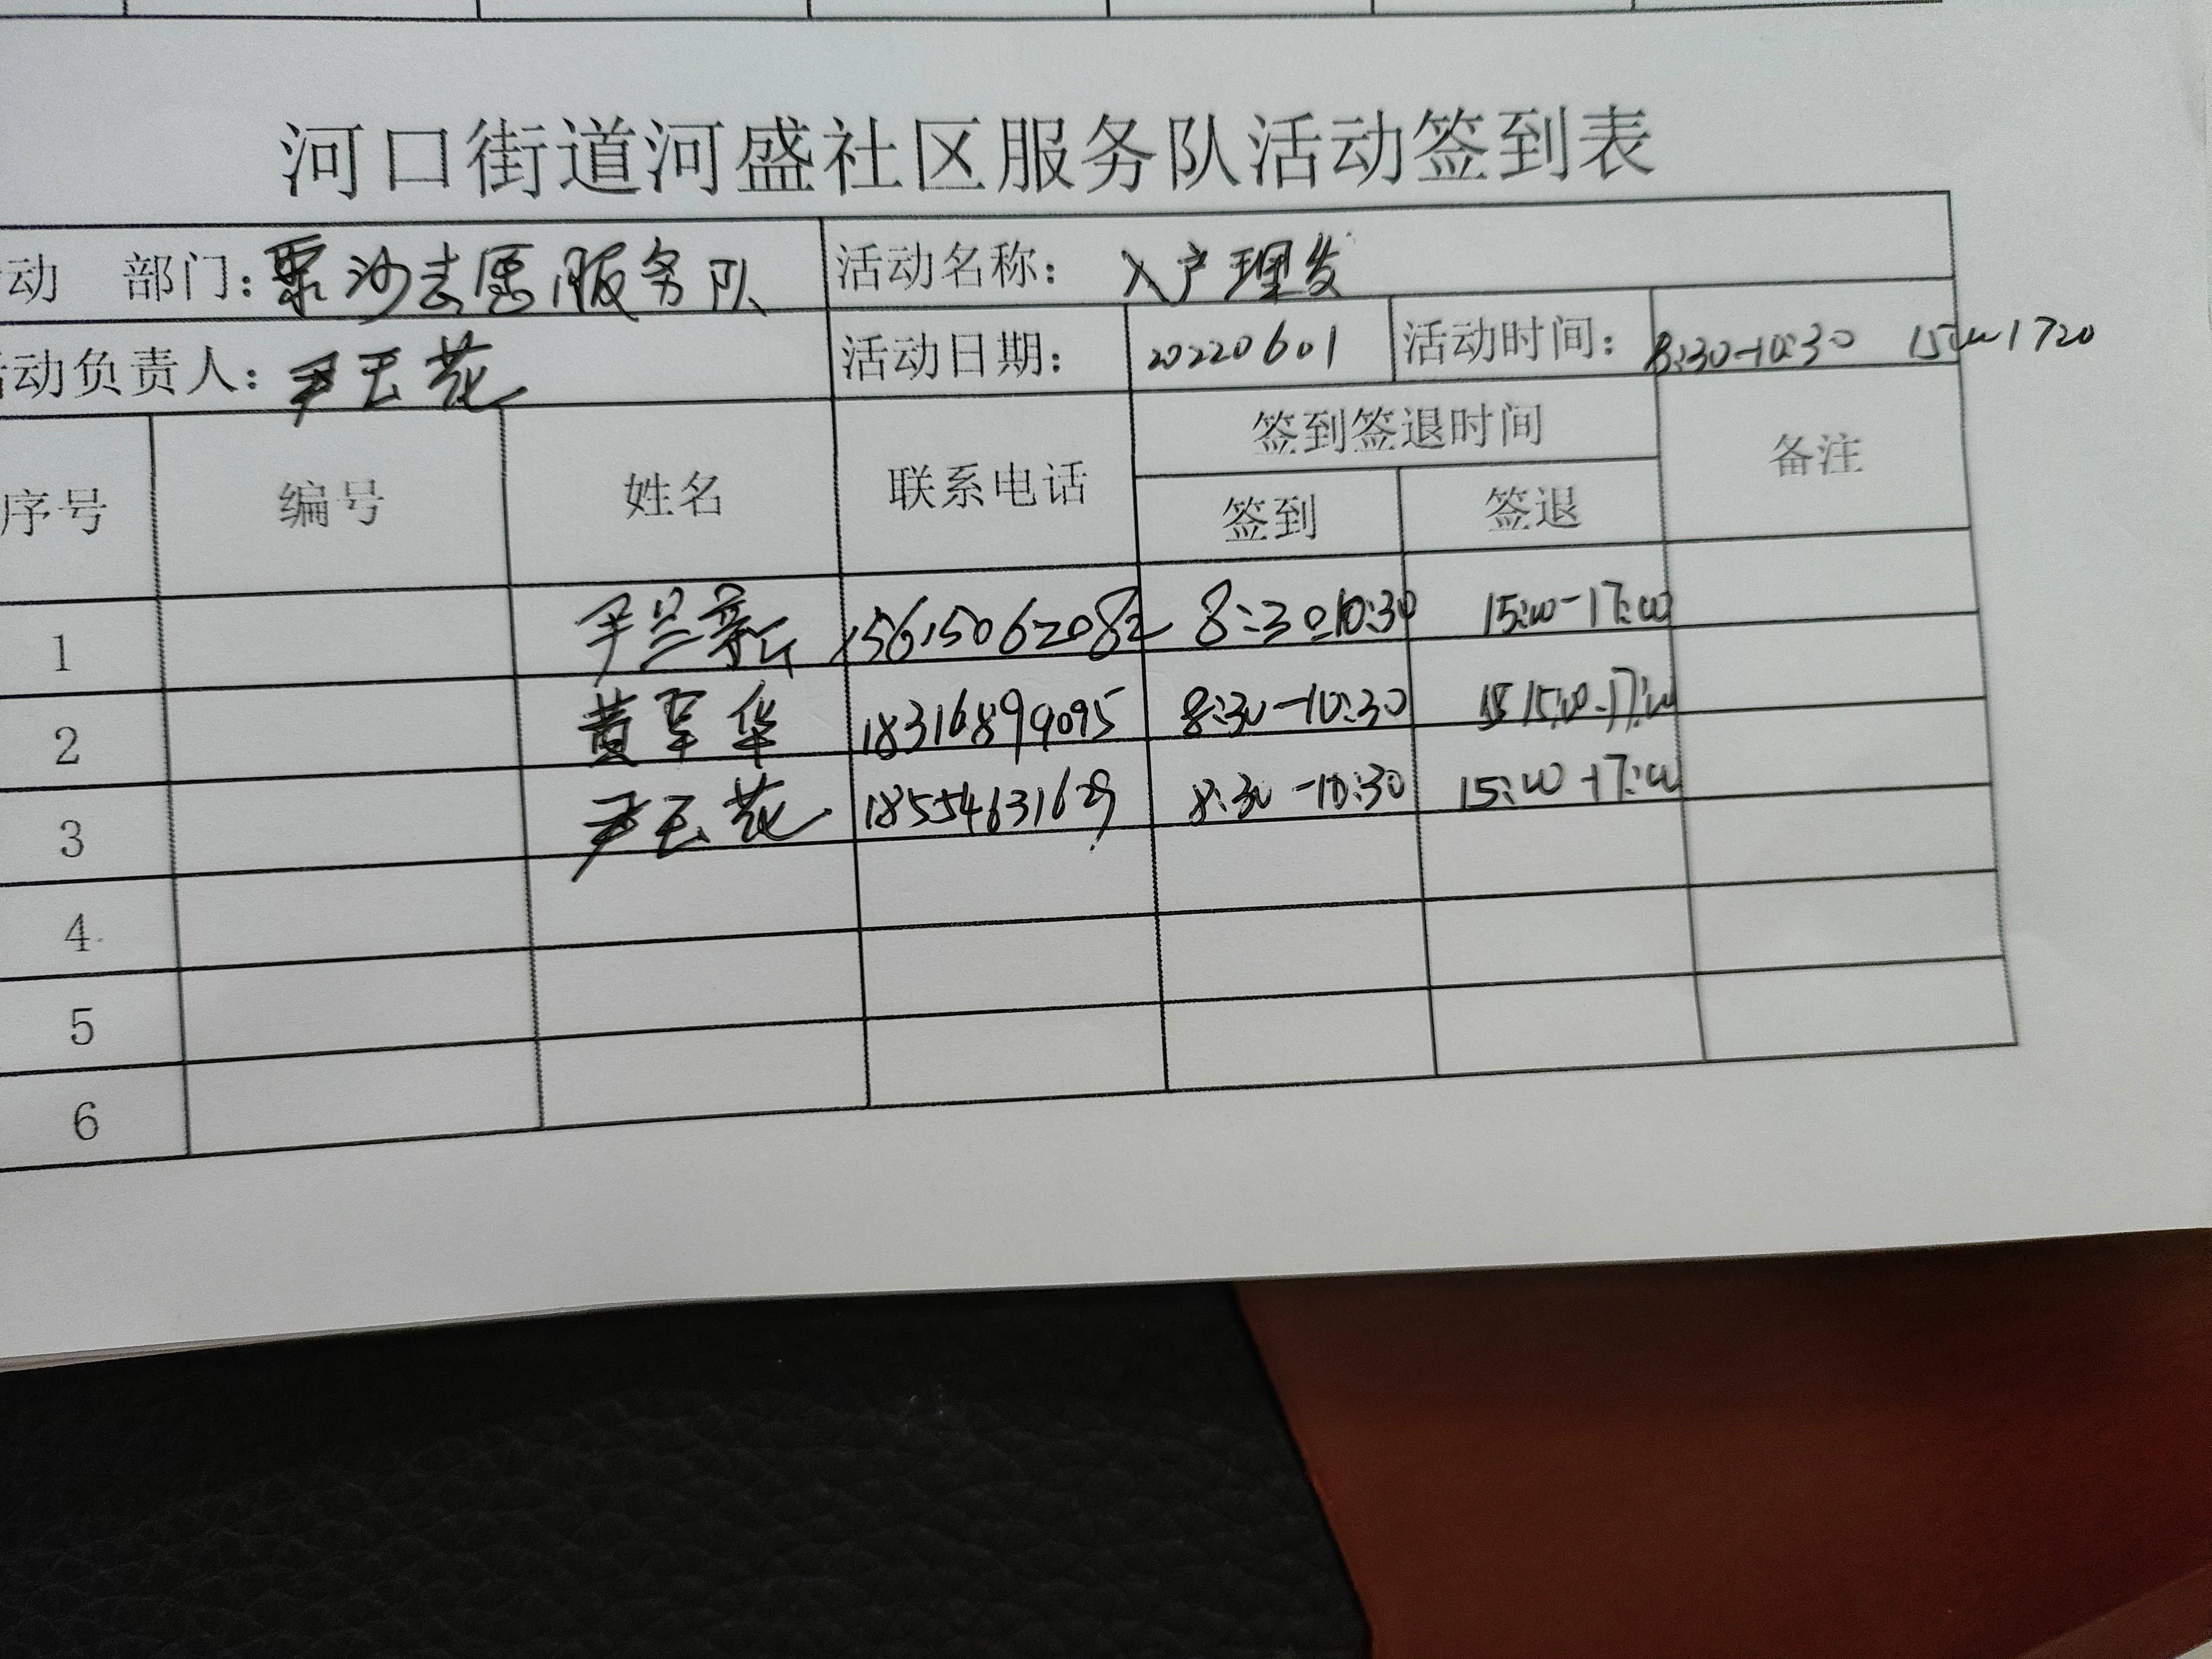 河口街道河盛社区服务队活动签到表
动 部门：沙志愿服务队 活动名称：入户理发
动负责人：尹玉花 活动日期：20220601 活动时间：8:30-10:30 15:00 1720
序号 编号 姓名 联系电话 签到签退时间 备注
签到 签退
1 尹兰 15615062082 8:30 10:30 15:00-17:00
2 黄军华 18316899095 8:30-10:30 15:00-17:00
3 尹玉花 18554631629 8:30-10:30 15:00-17:00
4
5
6